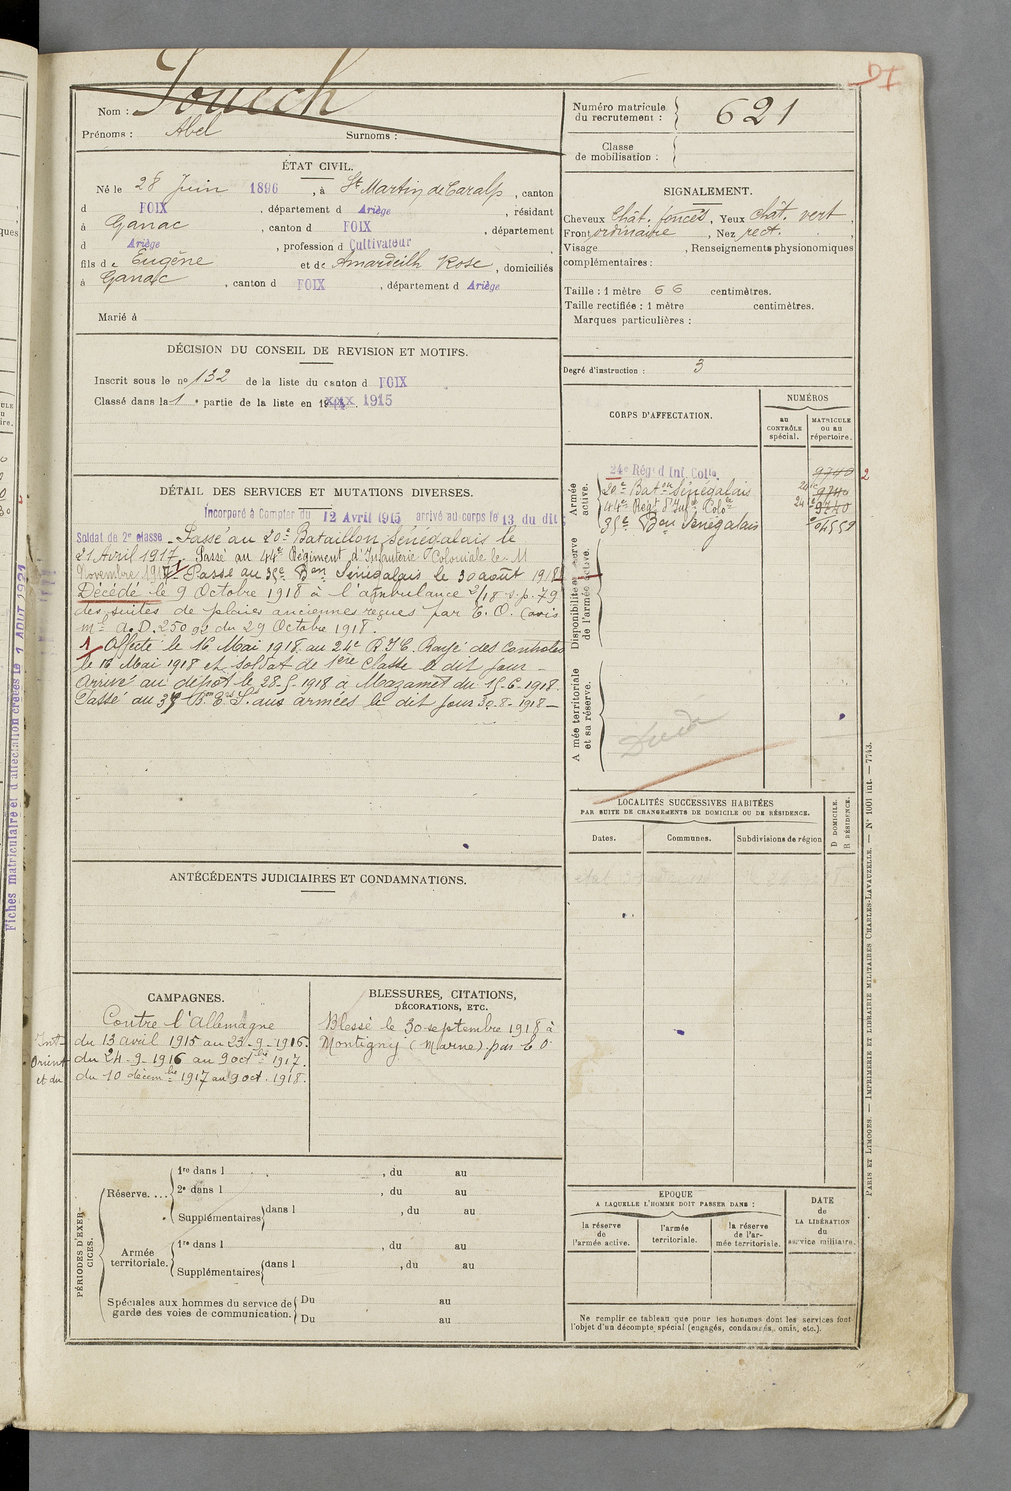 DI
Nom : Fouech
Prénoms : Abel Surnoms :
Numéro matricule du recrutement : 621
Classe de mobilisation :
ÉTAT CIVIL.
Né le 28 Juin 1896, à St Martin de Caralp, canton
d FOIX, département d Ariège, résidant
à Ganac, canton d FOIX, département
d Ariège, profession d Cultivateur
fils de Eugène et de Amardeilh Rose, domiciliés
à Ganac, canton d FOIX, département d Ariège
Marié à
SIGNALEMENT.
Cheveux Chât. foncés, Yeux chât. vert,
Front ordinaire, Nez rect.
Visage , Renseignements physionomiques
complémentaires :
Taille : 1 mètre 66 centimètres.
Taille rectifiée : 1 mètre centimètres.
Marques particulières :
Degré d'instruction : 3
DÉCISION DU CONSEIL DE REVISION ET MOTIFS.
Inscrit sous le no 132 de la liste du canton d FOIX
Classé dans la 1e partie de la liste en xxx 1915
DÉTAIL DES SERVICES ET MUTATIONS DIVERSES.
Incorporé à Compter du 12 Avril 1915 arrivé au corps le 13 du dit
Soldat de 2e classe - Passé au 20e Bataillon Sénégalais le
21 Avril 1917. Passé au 44e Régiment d'Infanterie Coloniale le 11
Novembre 1917 1 Passé au 35e Bon Sénégalais le 30 août 1918
Décédé le 9 Octobre 1918 à l'ambulance 2/18 s.p. 79
des suites de plaies anciennes reçues par E. O. (avis
ml A.D. 250 92 du 29 Octobre 1918.
1 Affecté le 16 Mai 1918 au 24e R.I.C. Rayé des Controles
le 16 Mai 1918 et soldat de 1ère classe le dit jour -
Arrivé au dépôt le 28-5-1918 à Mazamet du 15-6-1918.
Passé au 35 Bon T. S. aux armées le dit jour 30-8-1918 -
CORPS D'AFFECTATION.
NUMÉROS
au CONTRÔLE spécial.
MATRICULE ou au répertoire.
Armée active.
24e Régt d'Inf. Colle 9740 2
20e Baton Sénégalais 9740
44e Régt d'Infie Colole 9740
35e Bon Sénégalais 04559
Disponibilité et réserve de l'armée active.
Armée territoriale et sa réserve.
LOCALITÉS SUCCESSIVES HABITÉES
PAR SUITE DE CHANGEMENTS DE DOMICILE OU DE RÉSIDENCE.
Dates. Communes. Subdivisions de région
D DOMICILE.
R RÉSIDENCE.
ANTÉCÉDENTS JUDICIAIRES ET CONDAMNATIONS.
CAMPAGNES.
Contre l'Allemagne
Int- du 13 avril 1915 au 23-9-1916.
Orient du 24-9-1916 au 9 octbre 1917.
et du du 10 décembre 1917 au 9 oct. 1918.
BLESSURES, CITATIONS,
DÉCORATIONS, ETC.
Blessé le 30 septembre 1918 à
Montigny (Marne) par E O
PÉRIODES D'EXERCICES.
Réserve....
1re dans l , du au
2e dans l , du au
Supplémentaires dans l , du au
Armée territoriale.
1re dans l , du au
Supplémentaires dans l , du au
Spéciales aux hommes du service de garde des voies de communication.
Du au
Du au
EPOQUE
A LAQUELLE L'HOMME DOIT PASSER DANS :
la réserve de l'armée active.
l'armée territoriale.
la réserve de l'armée territoriale.
DATE de LA LIBÉRATION du service militaire.
Ne remplir ce tableau que pour les hommes dont les services font
l'objet d'un décompte spécial (engagés, condamnés, omis, etc.)
PARIS ET LIMOGES. — IMPRIMERIE ET LIBRAIRIE MILITAIRES CHARLES-LAVAUZELLE. — No 1001 int. — 7743.
Fiches matriculaire et d'affectation créées le 1 AOUT 1921